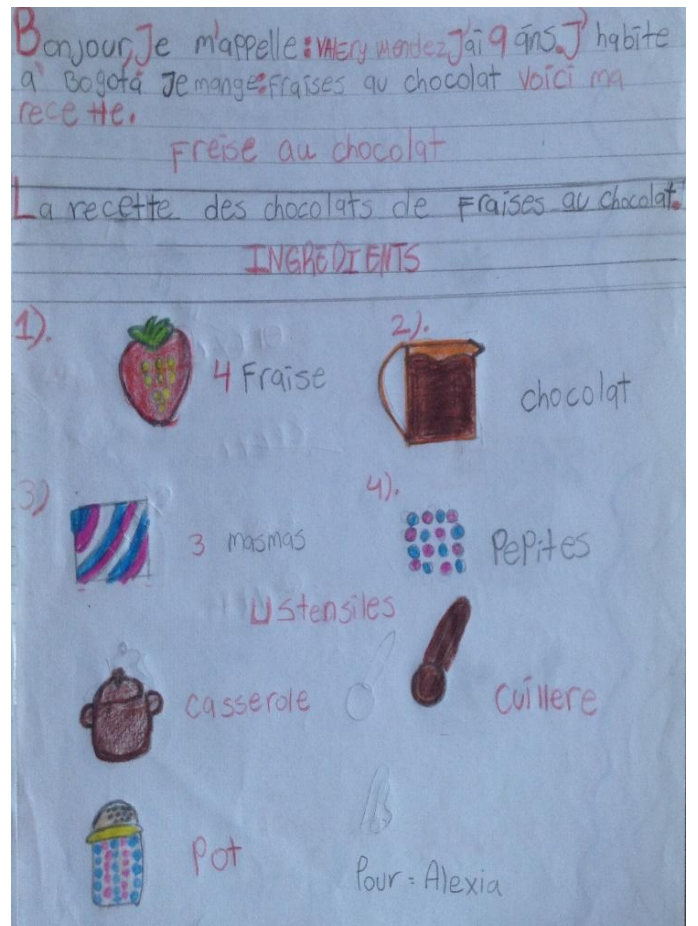 Bonjour, Je m'appelle: VAlERy mendez J'ai 9 áns. J' habite
a' Bogotá Je mange: Fraises au chocolat voici ma
recette.
Freise au chocolat
La recette des chocolats de Fraises au chocolat.
INGREDIENTS
1). 4 Fraise 2). chocolat
3) 3 masmas 4). PePites
Ustensiles
casserole cuillere
Pot
Pour = Alexia